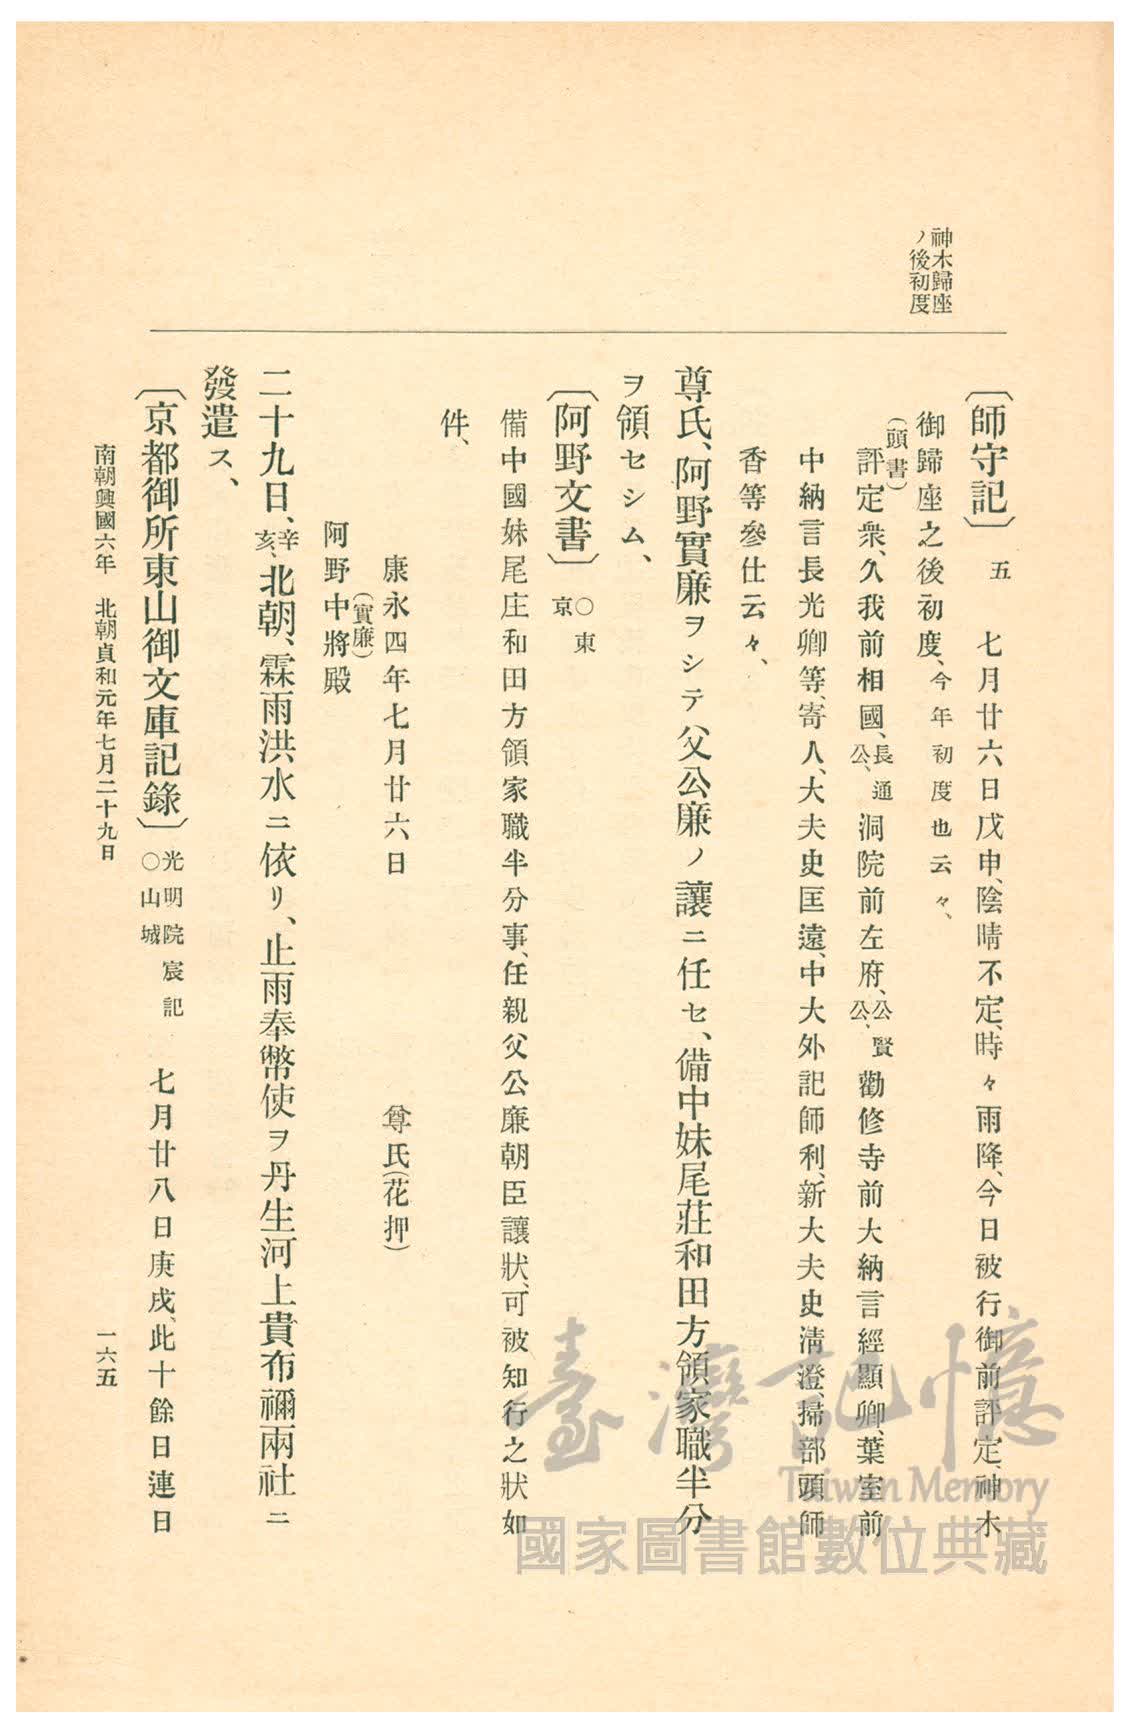 神木歸座
ノ後初度
〔師守記〕 五 七月廿六日戊申、陰晴不定、時々雨降、今日被行御前評定、神木
御歸座之後初度、今年初度也云々、
(頭書)
評定衆、久我前相國、長通公、洞院前左府、公賢公、勸修寺前大納言經顯卿、葉室前
中納言長光卿等、寄人、大夫史匡遠、中大外記師利、新大夫史淸澄、掃部頭師
香等參仕云々、
尊氏、阿野實廉ヲシテ父公廉ノ讓ニ任セ、備中妹尾莊和田方領家職半分
ヲ領セシム、
〔阿野文書〕 ○東京
備中國妹尾庄和田方領家職半分事、任親父公廉朝臣讓狀、可被知行之狀如
件、
康永四年七月廿六日 尊氏(花押)
(實廉)
阿野中將殿
二十九日、辛亥、北朝、霖雨洪水ニ依リ、止雨奉幣使ヲ丹生河上貴布禰兩社ニ
發遣ス、
〔京都御所東山御文庫記錄〕 光明院宸記○山城 七月廿八日庚戌、此十餘日連日
南朝興國六年 北朝貞和元年七月二十九日
一六五
臺灣記憶
Taiwan Memory
國家圖書館數位典藏